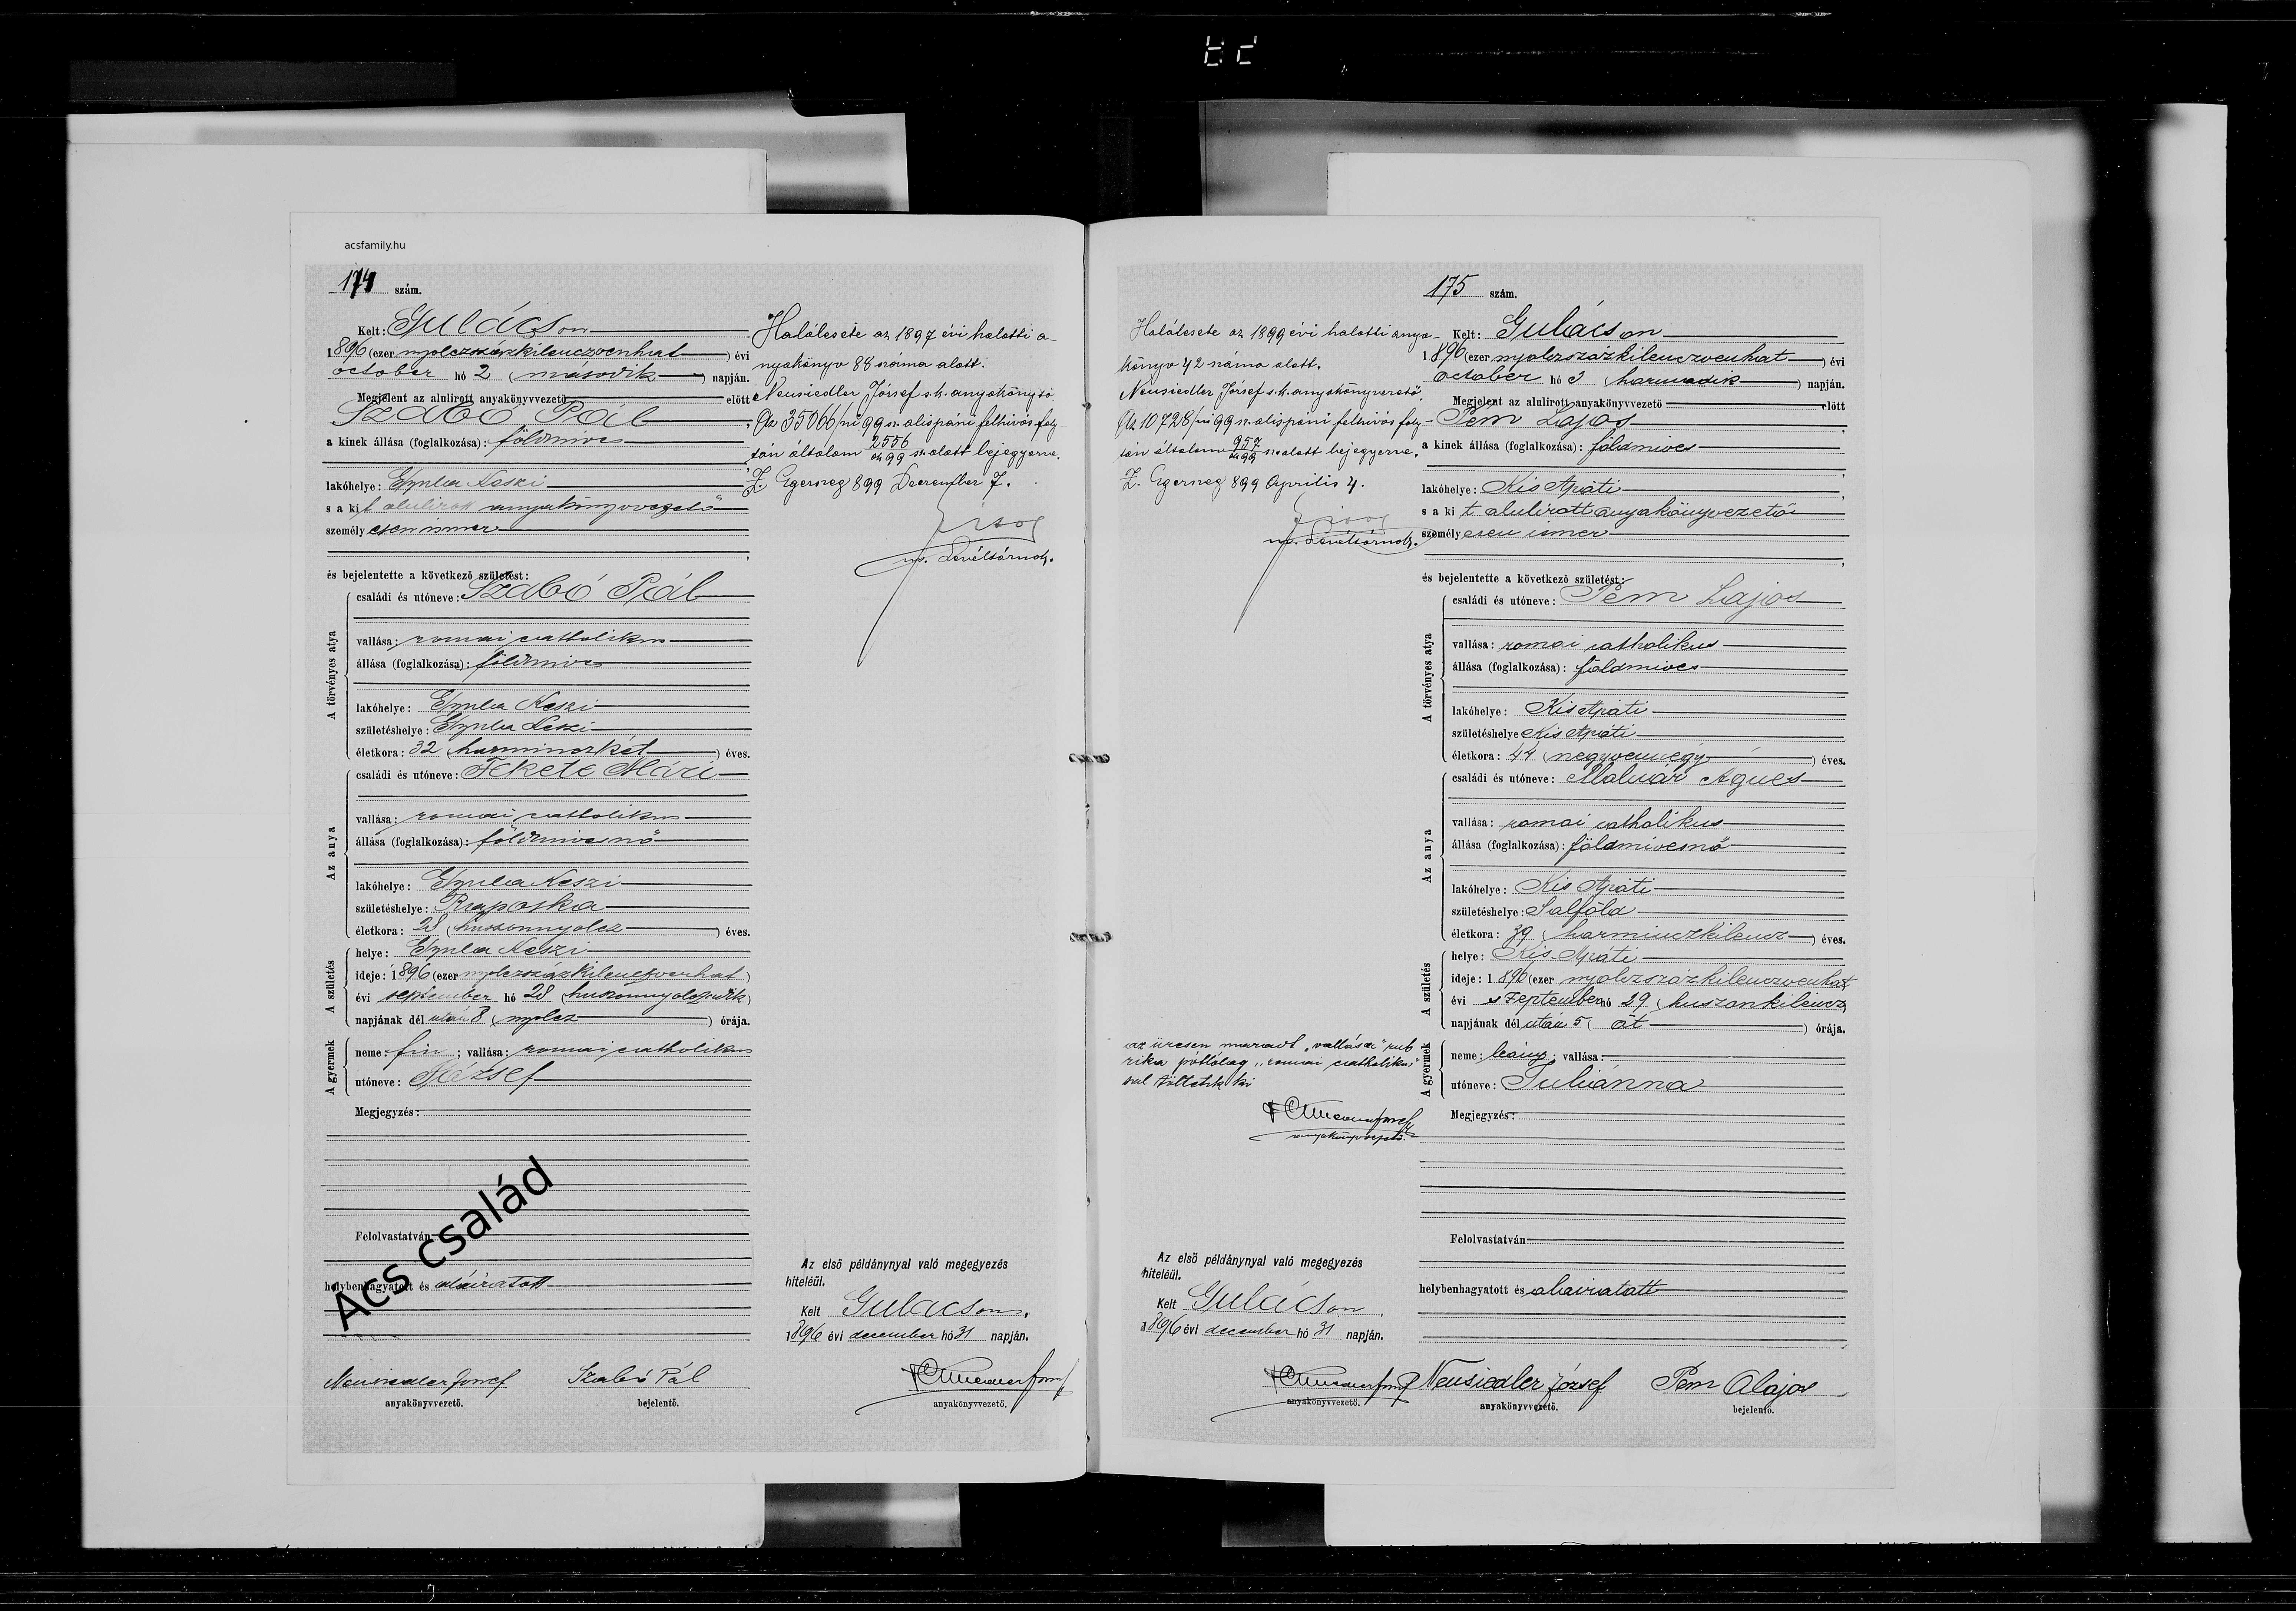 acsfamily.hu
174 szám.
Kelt: Gulácson
1896 (ezer nyolczszázkilenczvenhat) évi
october hó 2 (második) napján.
Megjelent az alulirott anyakönyvvezető előtt
Szabó Pál,
a kinek állása (foglalkozása): földmives
lakóhelye: Gyula Keszi
s a kit alulirott anyakönyvvezető
személyesen ismer,
és bejelentette a következő születést:
A törvényes atya
családi és utóneve: Szabó Pál
vallása: romai catholikus
állása (foglalkozása): földmives
lakóhelye: Gyula Keszi
születéshelye: Gyula Keszi
életkora: 32 (harminczkét) éves.
Az anya
családi és utóneve: Fekete Mári
vallása: romai catholikus
állása (foglalkozása): földmivesnő
lakóhelye: Gyula Keszi
születéshelye: Raposka
életkora: 28 (huszonnyolcz) éves.
A születés
helye: Gyula Keszi
ideje: 1896 (ezer nyolczszázkilenczvenhat)
évi september hó 28 (huszonnyolczadik)
napjának dél után 8 (nyolcz) órája.
A gyermek
neme: fiu; vallása: romai catholikus
utóneve: József
Megjegyzés:
Felolvastatván,
helybenhagyatott és aláiratott
Acs család
Neusiedler József
anyakönyvvezető.
Szabó Pál
bejelentő.
Halálesete az 1897 évi halotti a-
nyakönyv 88 száma alatt.
Neusiedler József s.k. anyakönyvv.
Az 35066/ni 99 sz. alispáni felhivás foly-
tán általam 2556/ni 99 sz. alatt bejegyezve.
Z. Egerszeg 899 December 7.
m. Levéltárnok.
Az első példánynyal való megegyezés
hiteléül.
Kelt Gulácson,
1896 évi december hó 31 napján.
anyakönyvvezető.
175 szám.
Kelt: Gulácson
1896 (ezer nyolczszázkilenczvenhat) évi
october hó 3 (harmadik) napján.
Megjelent az alulirott anyakönyvvezető előtt
Pem Lajos,
a kinek állása (foglalkozása): földmives
lakóhelye: Kis Apáti,
s a kit alulirott anyakönyvezető
személyesen ismer,
és bejelentette a következő születést:
A törvényes atya
családi és utóneve: Pem Lajos
vallása: romai catholikus
állása (foglalkozása): földmives
lakóhelye: Kis Apáti
születéshelye: Kis Apáti
életkora: 44 (negyvennégy) éves.
Az anya
családi és utóneve: Molnár Agnes
vallása: romai catholikus
állása (foglalkozása): földmivesnő
lakóhelye: Kis Apáti
születéshelye: Salföld
életkora: 39 (harminczkilencz) éves.
A születés
helye: Kis Apáti
ideje: 1896 (ezer nyolczszázkilenczvenhat
évi szeptember hó 29 (huszonkilencz)
napjának dél után 5 (öt) órája.
A gyermek
neme: leány; vallása:
utóneve: Juliánna
Megjegyzés:
Felolvastatván
helybenhagyatott és aláiratatt
Neusiedler József
anyakönyvvezető.
Pem Alajos
bejelentő.
Halálesete az 1899 évi halotti anya-
könyv 42 száma alatt.
Neusiedler József s.k. anyakönyvvezető.
Az 10728/ni 99 sz. alispáni felhivás foly-
tán általam 957/ni 99 sz. alatt bejegyezve.
Z. Egerszeg 899 Április 4.
m. Levéltárnok.
az üresen maradt "vallása" rub
rika pótlólag "romai catholikus"
sal töltetik ki
anyakönyvvezető.
Az első példánynyal való megegyezés
hiteléül.
Kelt Gulácson,
1896 évi december hó 31 napján.
anyakönyvvezető.